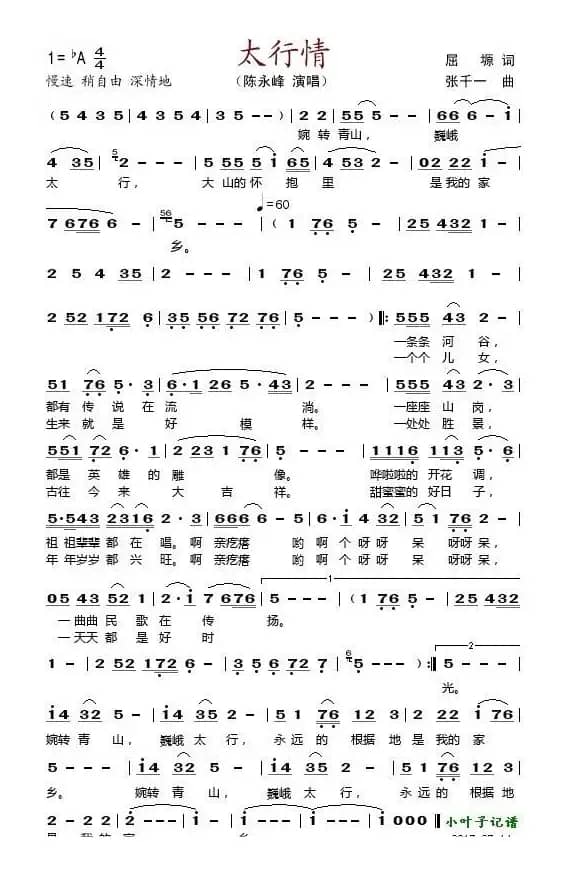 太行情
1=♭A 4/4
屈 塬 词
慢速 稍自由 深情地
（陈永峰 演唱）
张千一 曲
（5 4 3 5 | 4 3 5 4 | 3 5 4 3 | 2 - - 2 | 5 5 5 - | 6 6 6 - i |
婉 转 青山， 巍峨
4 3 5 5 2 - - - | 5 5 5 5 i 6 5 | 4 5 3 2 - | 0 2 2 2 i |
太 行， 大 山的 怀 抱 里 是 我的 家
7 6 7 6 6 - - | 5 6 5 - - - |（1 7 6 5 - | 2 5 4 3 2 1 - |
♩=60
乡。
2 5 4 3 5 | 2 - - - | 1 7 6 5 - | 2 5 4 3 2 1 - |
2 5 2 1 7 2 6 | 3 5 5 6 7 2 7 6 | 5 - - - ）‖: 5 5 5 4 3 2 - |
一条条 河 谷，
一个个 儿 女，
5 1 7 6 5 · 3 | 6 · 1 2 6 5 · 4 3 | 2 - - - | 5 5 5 4 3 5 - |
都有 传 说 在 流 淌。 一座座 山 岗，
生来 就 是 好 模 样。 一处处 胜 景，
5 5 1 7 2 6 · 1 | 2 2 3 1 7 6 | 5 - - - | 1 1 1 6 1 1 3 - |
都是 英 雄 的 雕 像。 哗啦啦的 开花 调，
古往 今 来 大 吉 祥。 甜蜜蜜的 好日 子，
5 · 5 4 3 2 3 1 6 2 · 3 | 6 6 6 6 - - | 6 · i 4 3 2 | 5 1 7 6 2 - |
祖 祖辈辈 都 在 唱。啊 亲疙瘩 哟 啊 个 呀呀 呆 呀呀 呆，
年 年岁岁 都 兴 旺。啊 亲疙瘩 哟 啊 个 呀呀 呆 呀呀 呆，
0 5 4 3 5 2 1 | 2 · i 7 6 7 6 | 5 - - - |（1 7 6 5 - | 2 5 4 3 2
1
一 曲曲 民 歌 在 传 扬。
一 天天 都 是 好 时
1 - | 2 5 2 1 7 2 6 · | 3 5 5 6 7 2 7 6 | 5 5 - - - ）:‖ 5 - - - |
2
光。
i 4 3 2 5 - | i 4 3 5 5 - | 3 5 2 - | 2 2 2 i 7 6 |
婉转 青 山， 巍峨 太 行， 永 远 的 根据 地 是 我 的 家
5 - - - | i 4 3 2 5 - | i 4 3 5 2 - | 5 1 7 6 1 2 |
乡。 婉转 青 山， 巍峨 太 行， 永 远 的 根据 地
2 · 2 2 3 | i - - - | i - - i | i 0 0 0 ‖
小叶子记谱